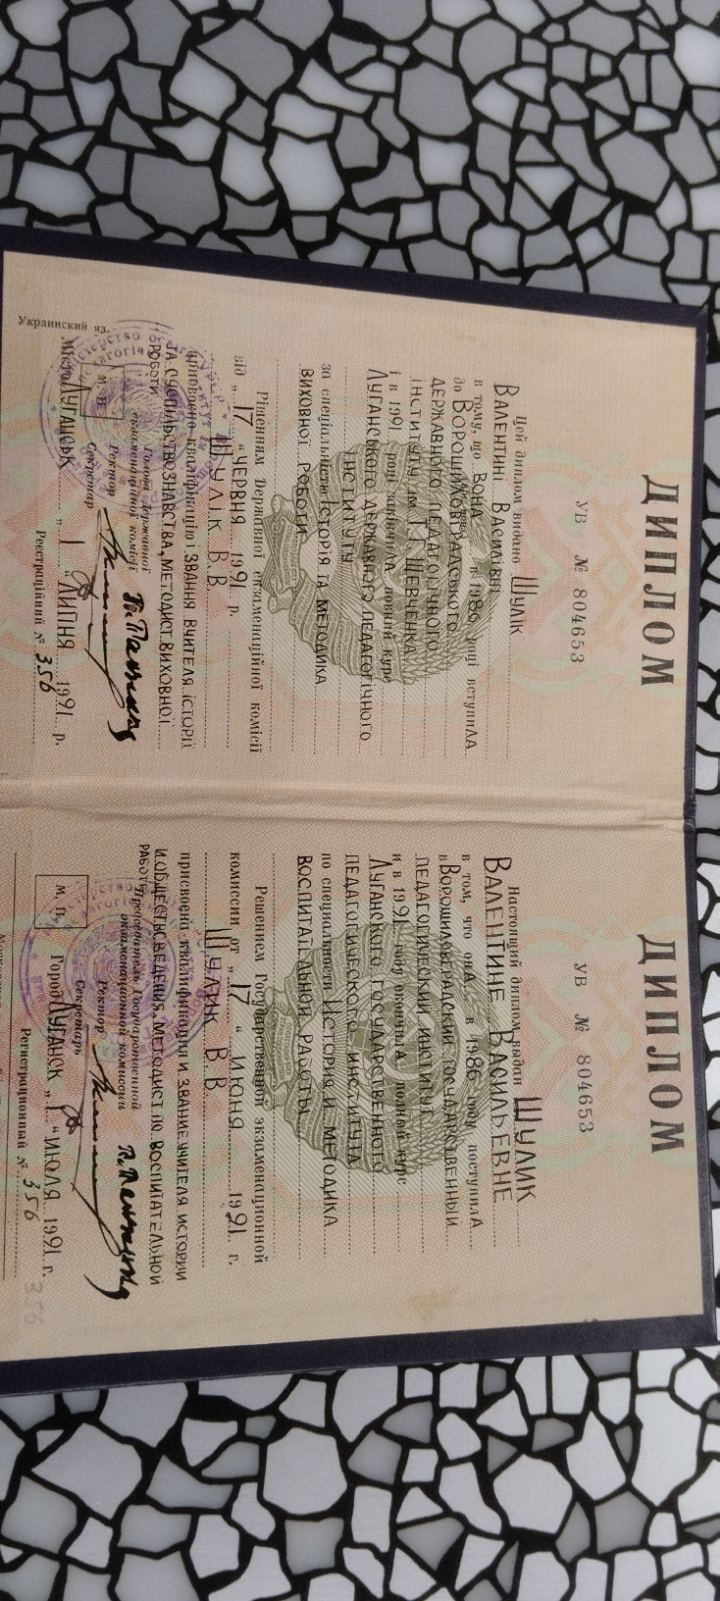 ДИПЛОМ
УВ № 804653
Цей диплом видано Шулік
Валентині Василівні
в тому, що вона в 1986 році вступила
до Ворошиловградського
державного педагогічного
інституту ім. Т.Г. Шевченка
і в 1991 році закінчила повний курс
Луганського державного педагогічного
інституту
за спеціальністю історія та методика
виховної роботи
Рішенням Державної екзаменаційної комісії
від „ 17 " червня 1991 р.
Шулік В.В.
присвоєно кваліфікацію і звання вчителя історії
та суспільствознавства, методист виховної
роботи
Голова Державної
екзаменаційної комісії
Ректор
Секретар
М. П.
Місто Луганськ „ 1 " липня 1991 р.
Реєстраційний № 356
Украинский яз.
ДИПЛОМ
УВ № 804653
Настоящий диплом выдан Шулик
Валентине Васильевне
в том, что она в 1986 году поступила
в Ворошиловградский государственный
педагогический институт
и в 1991 году окончила полный курс
Луганского государственного
педагогического института
по специальности история и методика
воспитательной работы
Решением Государственной экзаменационной
комиссии от „ 17 " июня 1991 г.
Шулик В.В.
присвоена квалификация и звание учителя истории
и обществоведения, методист по воспитательной
работе
Председатель Государственной
экзаменационной комиссии
Ректор
Секретарь
М. П.
Город Луганск „ 1 " июля 1991 г.
Регистрационный № 356
356